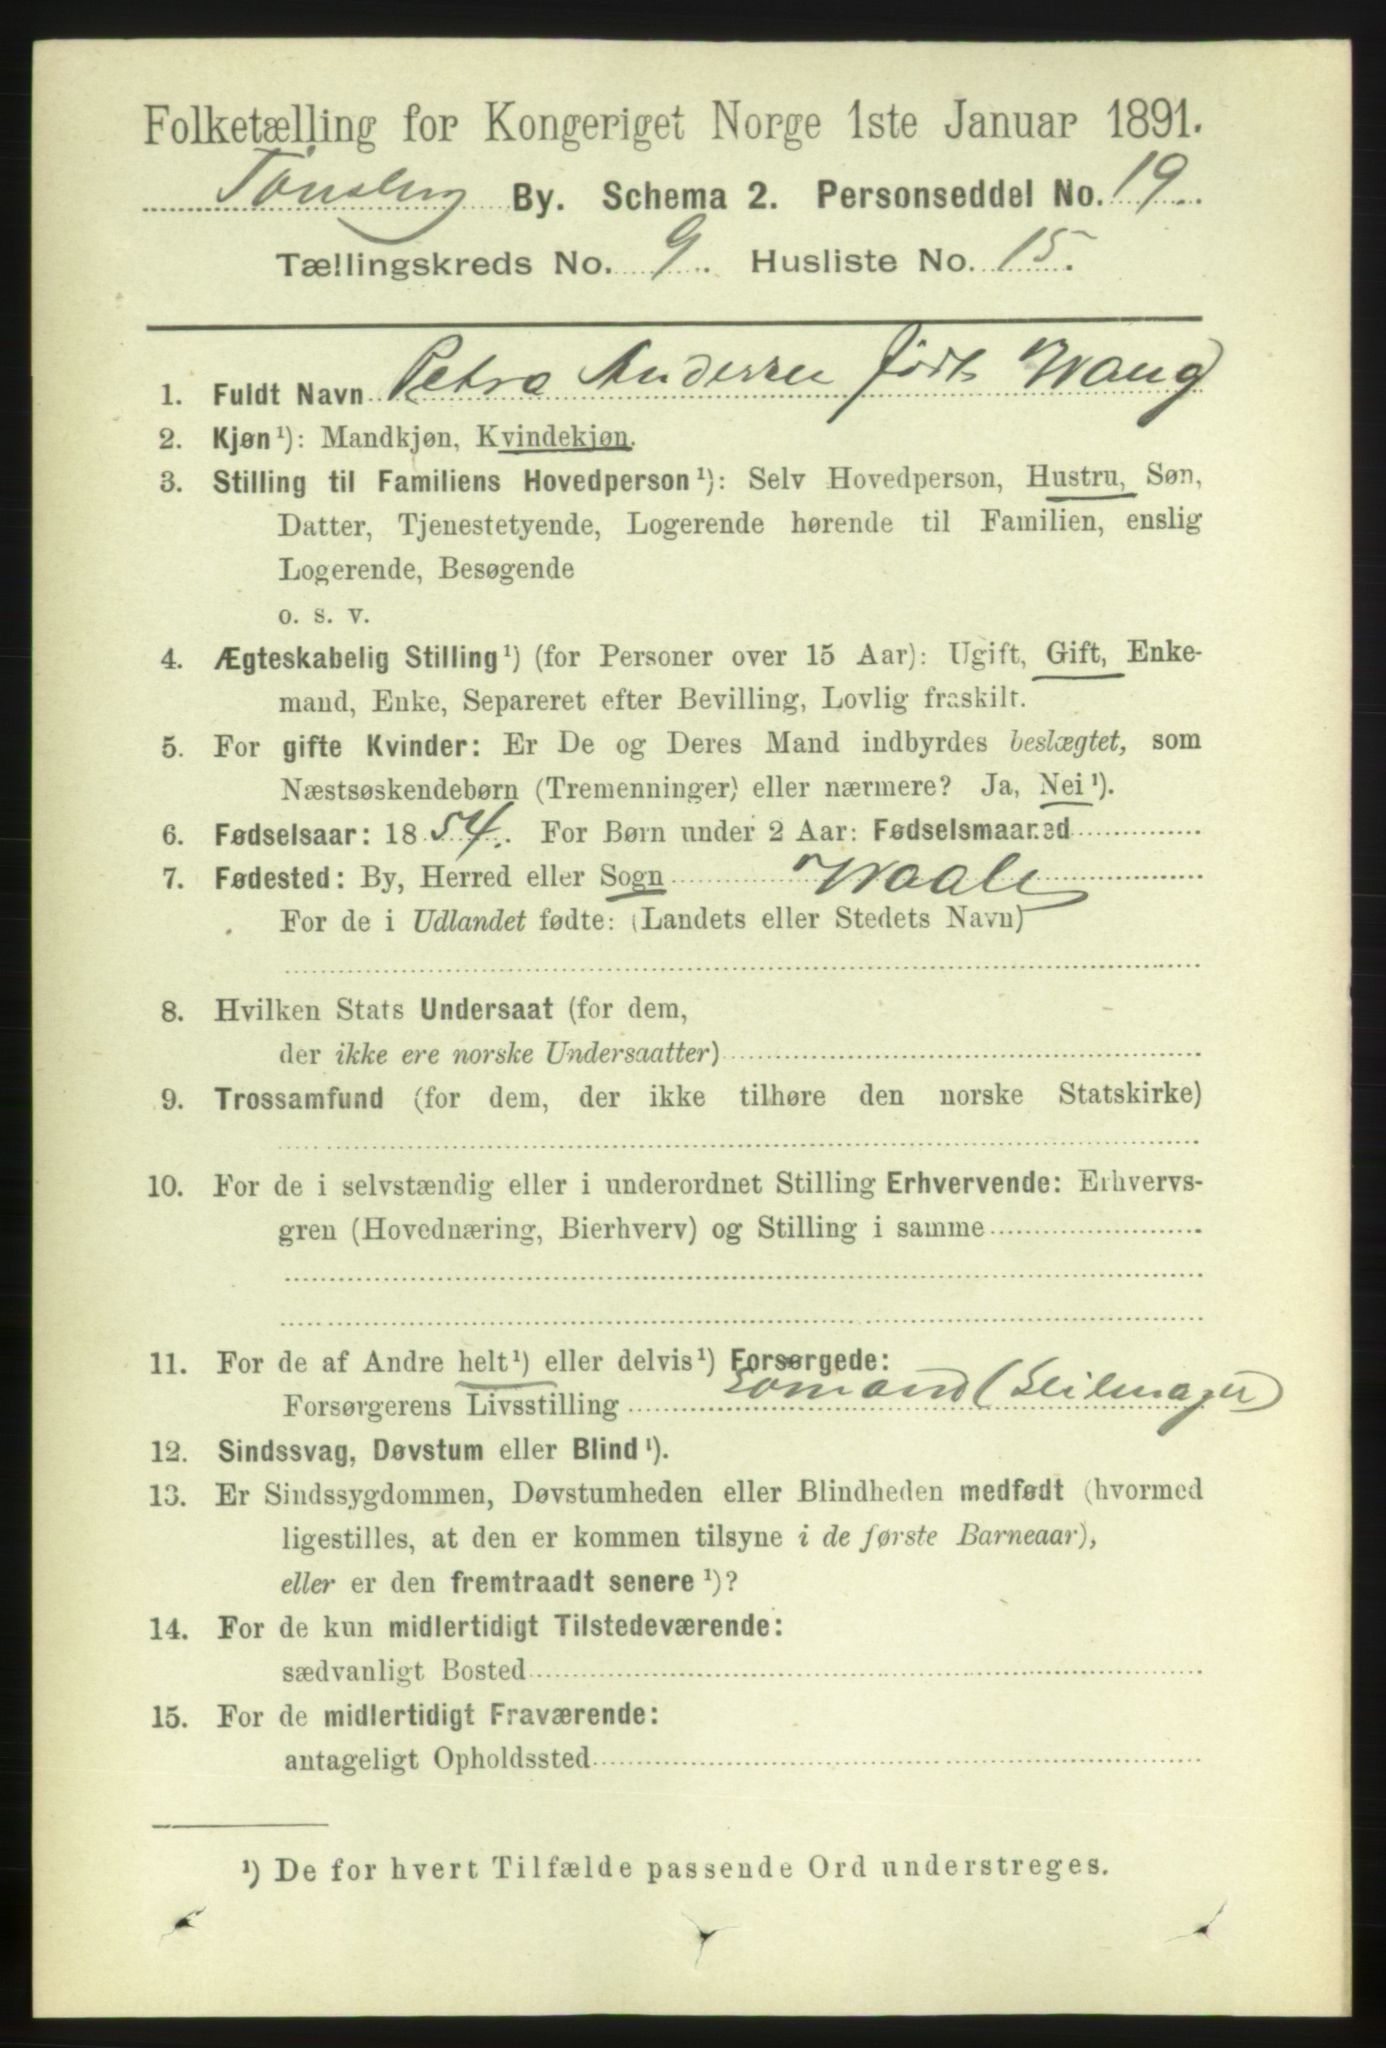 Folketælling for Kongeriget Norge 1ste Januar 1891.
Tønsberg By. Schema 2. Personseddel No. 19.
Tællingskreds No. 9. Husliste No. 15.
1. Fuldt Navn Petra Andersen født Wang
2. Kjøn ¹): Mandkjøn, Kvindekjøn.
3. Stilling til Familiens Hovedperson ¹): Selv Hovedperson, Hustru, Søn,
Datter, Tjenestetyende, Logerende hørende til Familien, enslig
Logerende, Besøgende
o. s. v.
4. Ægteskabelig Stilling ¹) (for Personer over 15 Aar): Ugift, Gift, Enke-
mand, Enke, Separeret efter Bevilling, Lovlig fraskilt.
5. For gifte Kvinder: Er De og Deres Mand indbyrdes beslægtet, som
Næstsøskendebørn (Tremenninger) eller nærmere? Ja, Nei ¹).
6. Fødselsaar: 1854. For Børn under 2 Aar: Fødselsmaaned
7. Fødested: By, Herred eller Sogn Waale
For de i Udlandet fødte: (Landets eller Stedets Navn)
8. Hvilken Stats Undersaat (for dem,
der ikke ere norske Undersaatter)
9. Trossamfund (for dem, der ikke tilhøre den norske Statskirke)
10. For de i selvstændig eller i underordnet Stilling Erhvervende: Erhvervs-
gren (Hovednæring, Bierhverv) og Stilling i samme
11. For de af Andre helt ¹) eller delvis ¹) Forsørgede:
Forsørgerens Livsstilling Sømand (Seilmager)
12. Sindssvag, Døvstum eller Blind ¹).
13. Er Sindssygdommen, Døvstumheden eller Blindheden medfødt (hvormed
ligestilles, at den er kommen tilsyne i de første Barneaar),
eller er den fremtraadt senere ¹)?
14. For de kun midlertidigt Tilstedeværende:
sædvanligt Bosted
15. For de midlertidigt Fraværende:
antageligt Opholdssted
¹) De for hvert Tilfælde passende Ord understreges.